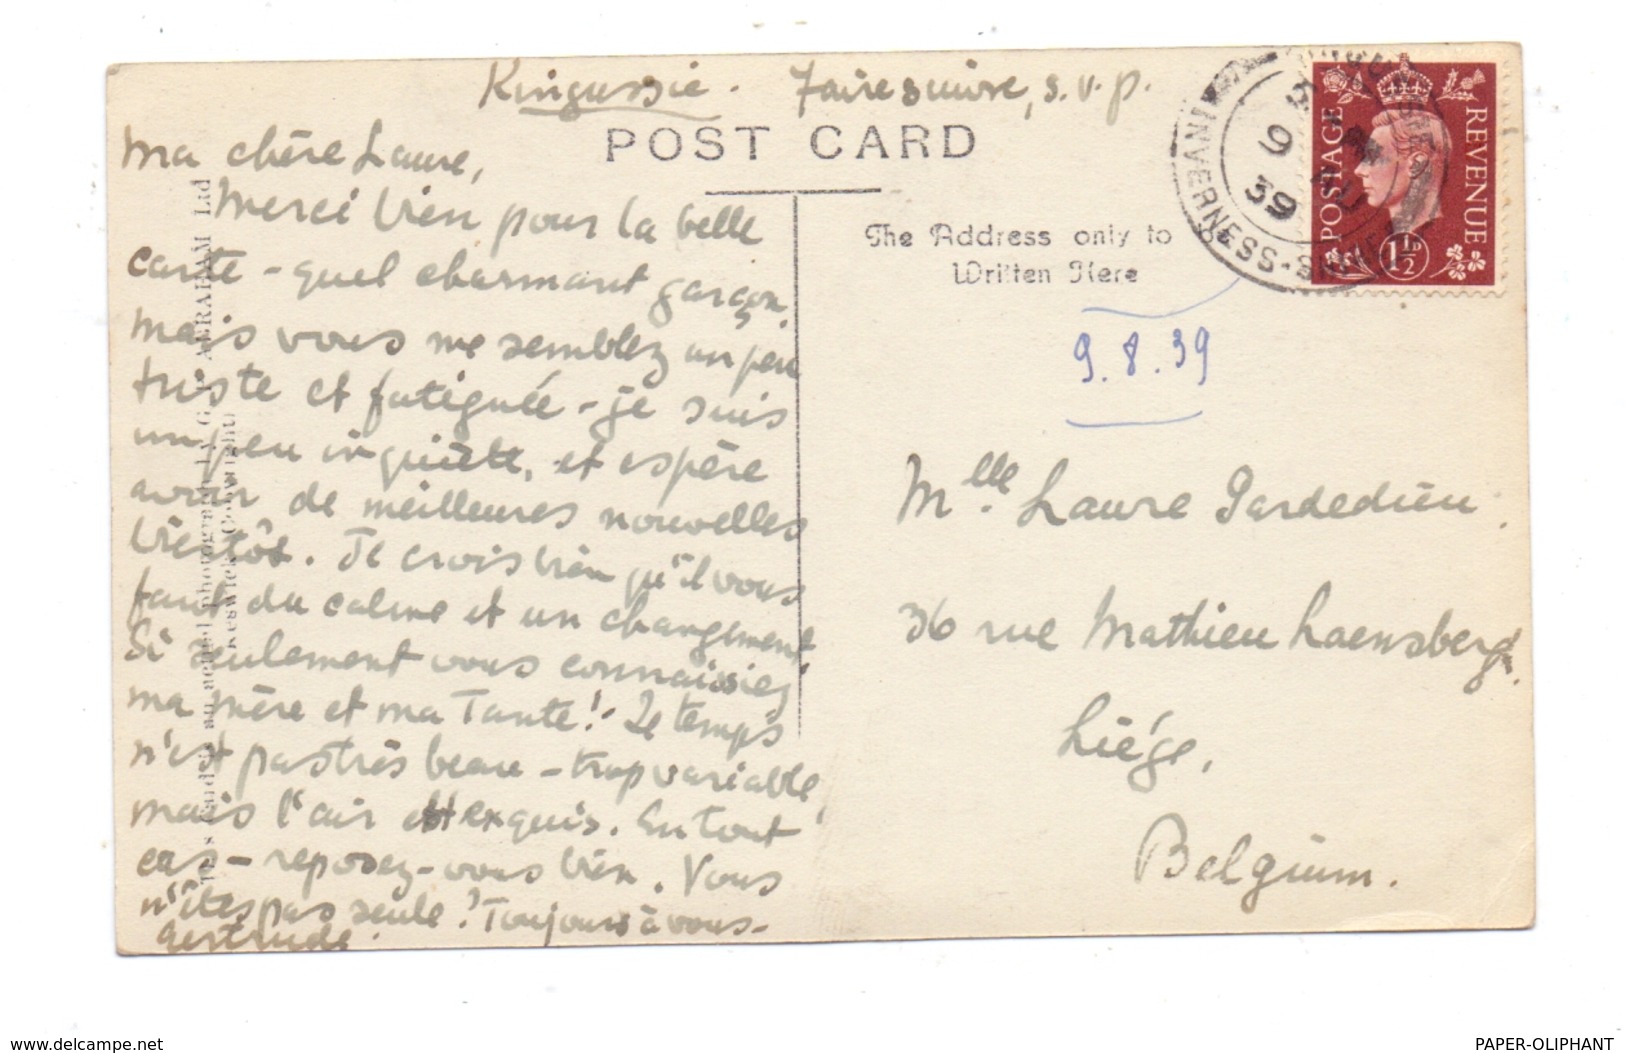 Kingussie. Faire suivre, s.v.p.
POST CARD
Ma chère Laure,
Merci bien pour la belle
carte - quel charmant garçon,
mais vous me semblez un peu
triste et fatiguée - je suis
un peu inquiète, et espère
avoir de meilleures nouvelles
bientôt. Je crois bien qu'il vous
faut du calme et un changement
Si seulement vous connaissiez
ma mère et ma Tante! Le temps
n'est pas très beau - trop variable,
mais l'air est exquis. En tout
cas - reposez-vous bien. Vous
n'êtes pas seule! Toujours à vous -
Gertrude.
G. P. ABRAHAM Ltd
Keswick (Copyright)
The Address only to be
Written Here
9.8.39
Mlle. Laure Gardedieu.
36 rue Mathieu Laensbergh.
Liége,
Belgium.
POSTAGE
REVENUE
1½D
INVERNESS-SHIRE
9 AU
39
www.delcampe.net
PAPER-OLIPHANT